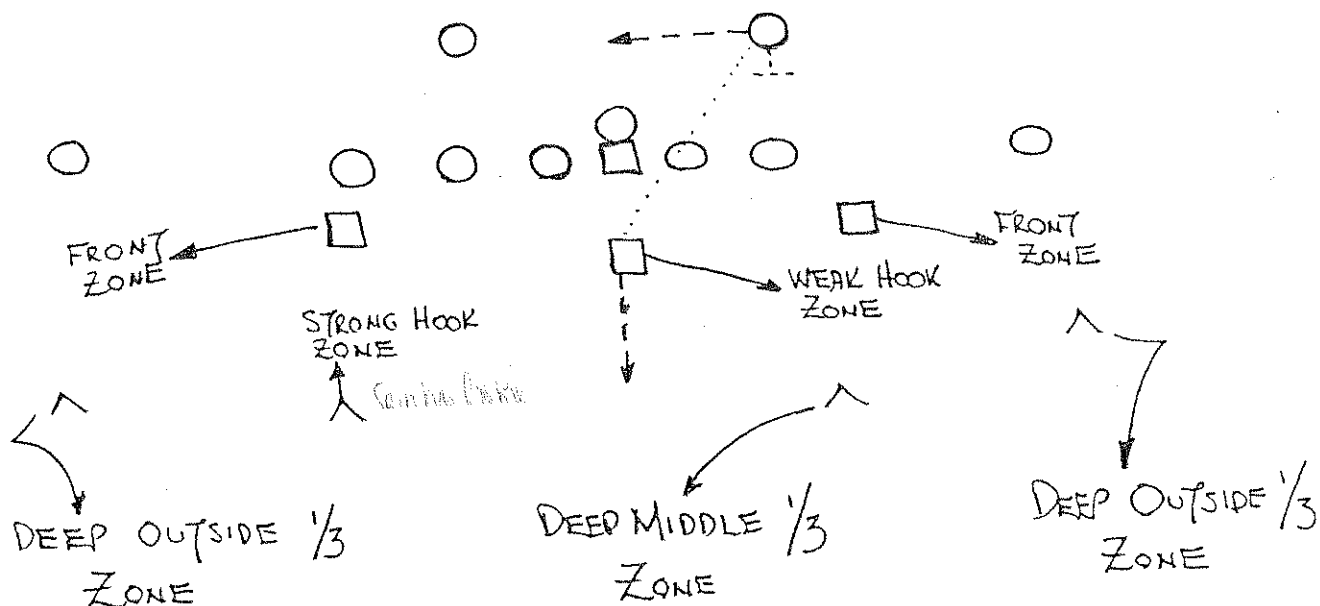 FRONT
ZONE
FRONT
ZONE
WEAK HOOK
ZONE
STRONG HOOK
ZONE
DEEP OUTSIDE 1/3
ZONE
DEEP MIDDLE 1/3
ZONE
DEEP OUTSIDE 1/3
ZONE